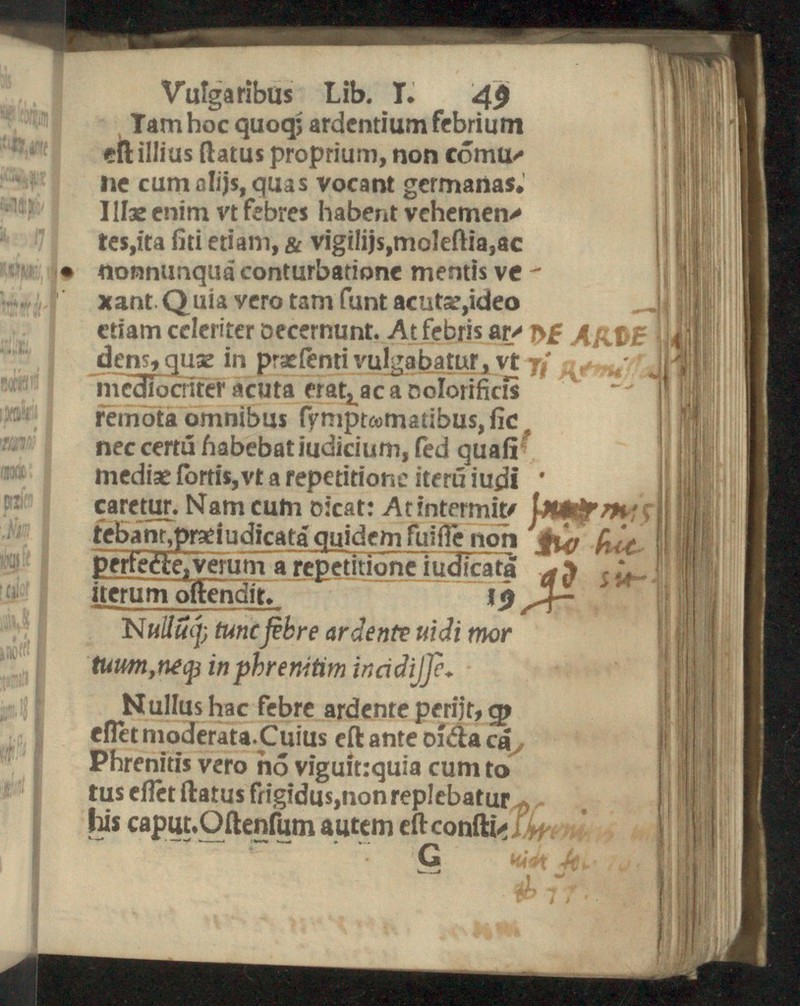 Vulgaribus Lib. I. 49
Iam hoc quoqꝫ ardentium febrium
eſt illius ſtatus proprium, non cõmu-
ne cum alijs, quas vocant germanas.
Illæ enim vt febres habent vehemen-
tes,ita ſiti etiam, & vigilijs,moleſtia,ac
nonnunquã conturbatione mentis ve-
xant. Quia vero tam ſunt acutæ,ideo
etiam celeriter decernunt. At febris ar- DE ARDE
dens, quæ in præſenti vulgabatur, vt
mediocriter acuta erat, ac a dolorificis
remota omnibus ſymptωmatibus, ſic
nec certũ habebat iudicium, ſed quaſi
mediæ ſortis, vt a repetitione iterũ iudi
caretur. Nam cum dicat: At intermit-
tebant,præiudicatã quidem fuiſſe non
perfecte, verum a repetitione iudicatã
iterum oſtendit. 19
Nullũqꝫ tunc febre ardente uidi mor
tuum,neqꝫ in phrenitim incidiſſe.
Nullus hac febre ardente perijt, ꝙ
eſſet moderata.Cuius eſt ante dicta cã,
Phrenitis vero nõ viguit:quia cum to
tus eſſet ſtatus frigidus,non replebatur
his caput.Oſtenſum autem eſt conſti-
G